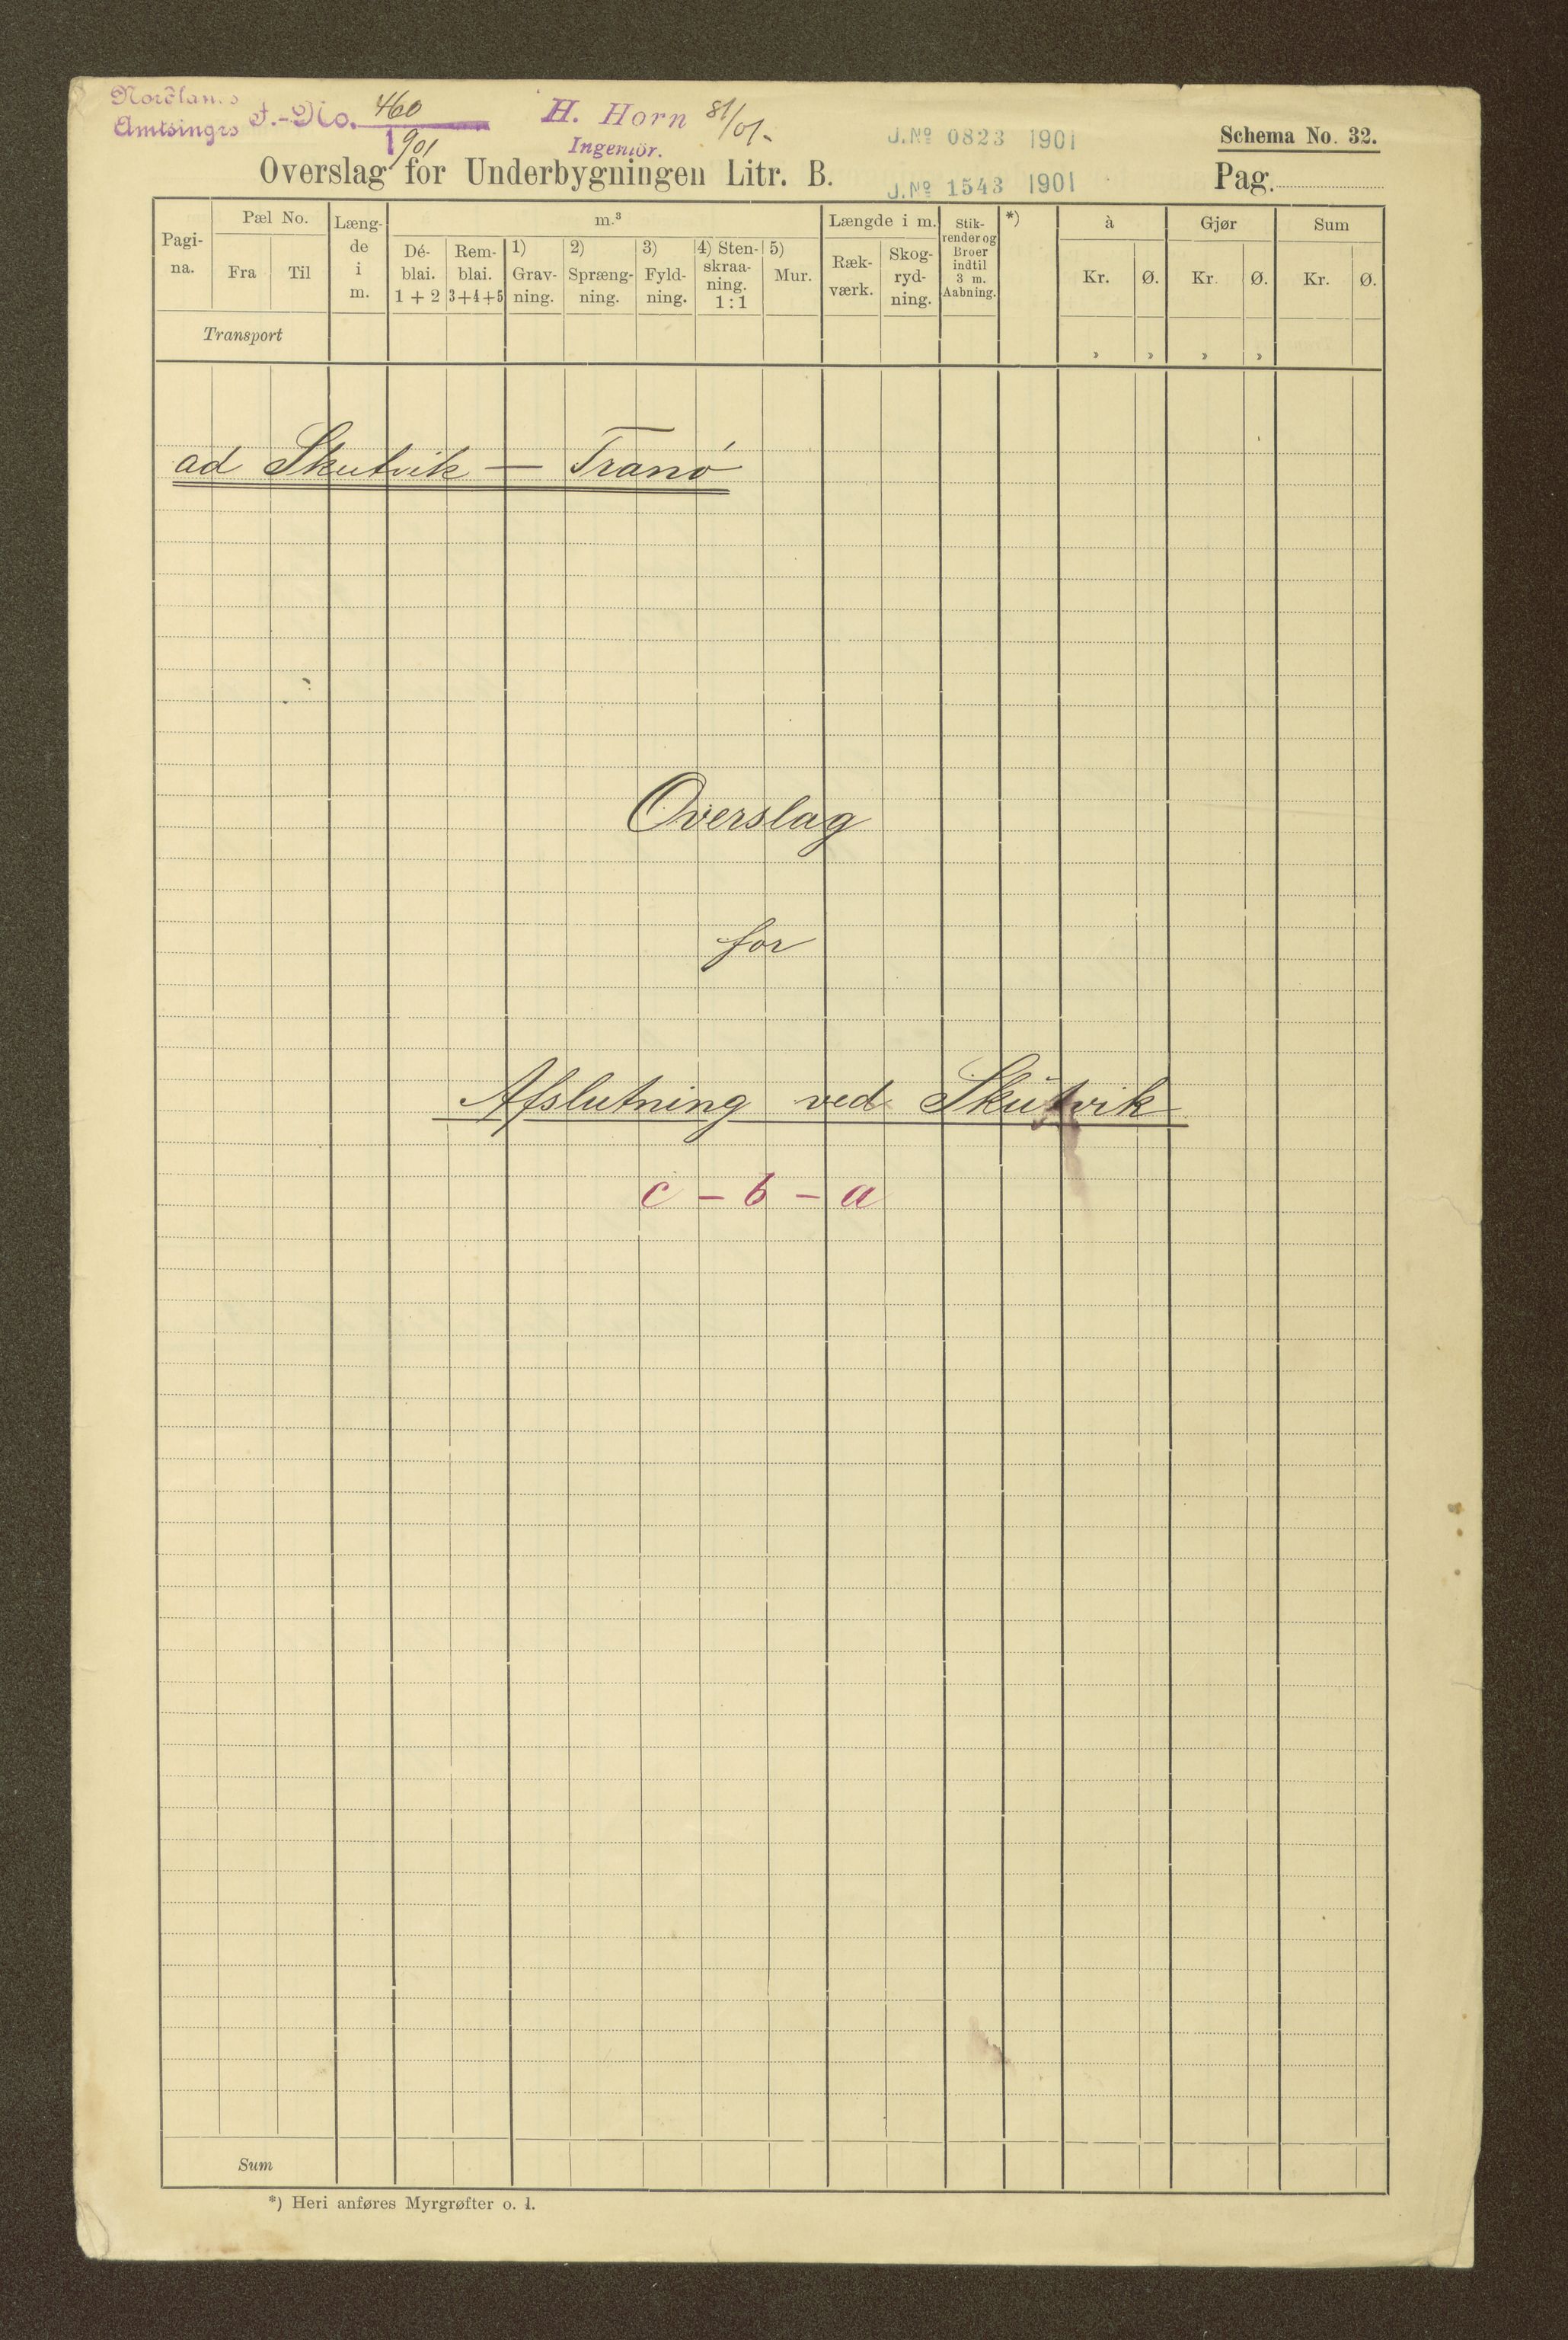 Nordlands J.-No. 460
Amtsingrs 1901
H. Horn 81/01-
Ingeniör.
J.№ 0823 1901
J.№ 1543 1901
Schema No. 32.
Overslag for Underbygningen Litr. B.
Pag.
Pagi-
na.
Pæl No.
Fra Til
Læng-
de
i
m.
m.³
Dé-
blai.
1 + 2
Rem-
blai.
3+4+5
1)
Grav-
ning.
2)
Spræng-
ning.
3)
Fyld-
ning.
4) Sten-
skraa-
ning.
1 : 1
5)
Mur.
Længde i m.
Ræk-
værk.
Skog-
ryd-
ning.
Stik-
render og
Broer
indtil
3 m.
Aabning.
*)
à
Kr. Ø.
Gjør
Kr. Ø.
Sum
Kr. Ø.
Transport
ad Skutvik — Tranö
Overslag
for
Afslutning ved Skutvik
c – b – a
Sum
*) Heri anføres Myrgrøfter o. l.